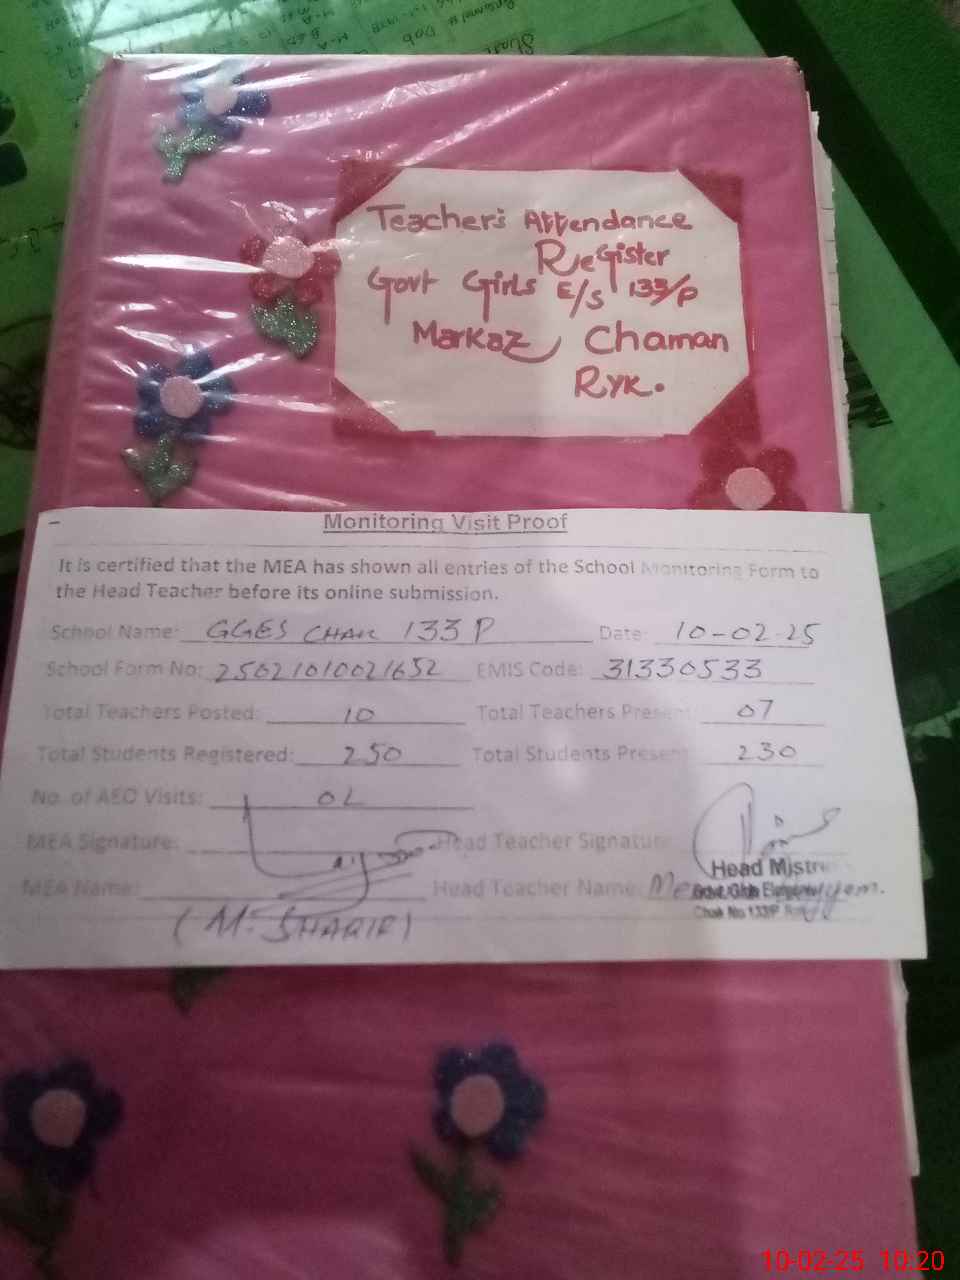 Teacher's Attendance
Register
Govt Girls E/S 133/P
Markaz Chaman
Ryk.
Monitoring Visit Proof
It is certified that the MEA has shown all entries of the School Monitoring Form to
the Head Teacher before its online submission.
School Name: GGES CHAK 133 P Date: 10-02-25
School Form No: 25021010021652 EMIS Code: 31330533
Total Teachers Posted: 10 Total Teachers Present: 07
Total Students Registered: 250 Total Students Present: 230
No. of AEO Visits: 02
MEA Signature: Head Teacher Signature:
Head Mistress
MEA Name: Head Teacher Name:
Govt. Girls Elementary
Chak No 133/P
(M. SHARIF)
10-02-25 10:20